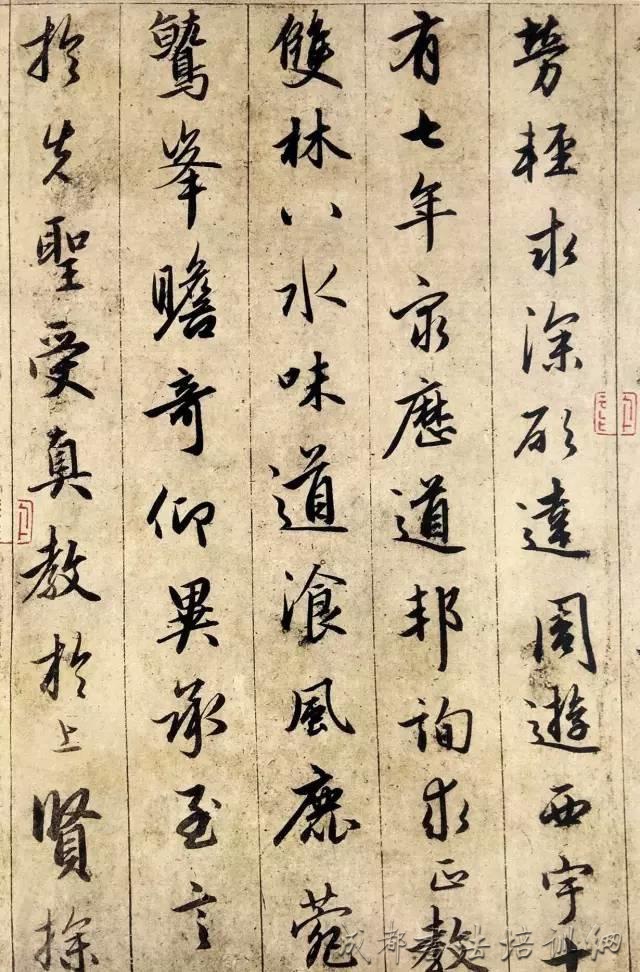 勞輕求深願達周遊西宇十
有七年窮歷道邦詢求正教
雙林八水味道湌風鹿菀
鷲峯瞻奇仰異承至言
於先聖受真教於上賢探
成都书法培训網